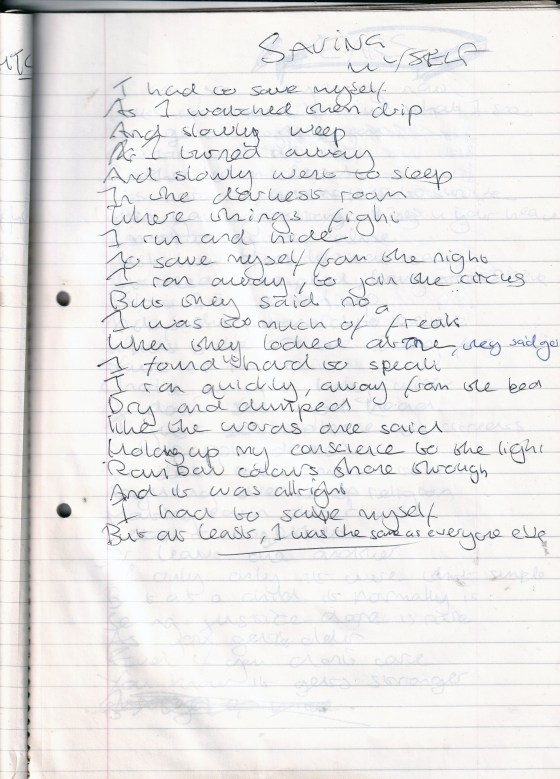 SAVING
MYSELF
I had to save myself
As I watched them drip
And slowly weep
As I turned away
And slowly went to sleep
In the darkness room
Where things fight
I run and hide
To save myself from the night
I ran away, to join the circus
But they said no
I was too much of a freak
When they looked at me, they said
I found it hard to speak
I ran quickly, away from the bed
Dry and dumped
Like the words once said
Holding up my conscience to the light
Rainbow colours shone through
And it was allright
I had to save myself
But at least, I was the same as everyone else